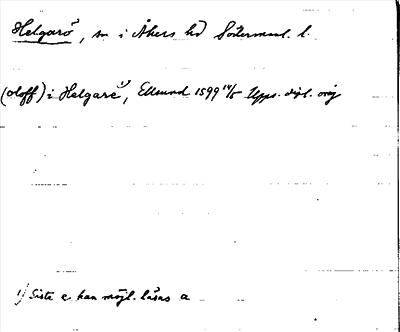 Helgarö, sn i Åkers hd Södermanl. l.
(Oloff) i Helgare¹⁾, Ellsund 1599 14/5 Upps. dipl. orig
¹⁾ Siste e kan möjl. läsas a